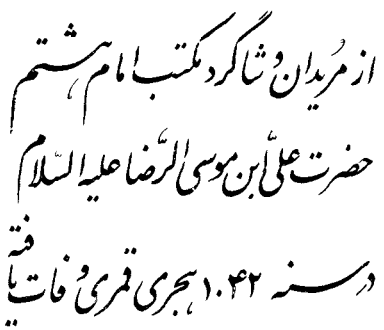 از مُریدان و شاگرد مکتب امام هشتم
حضرت علیّ ابن موسی الرّضا علیه السّلام
در سنه ۱۰۴۲ هجری قمری وفات یافته